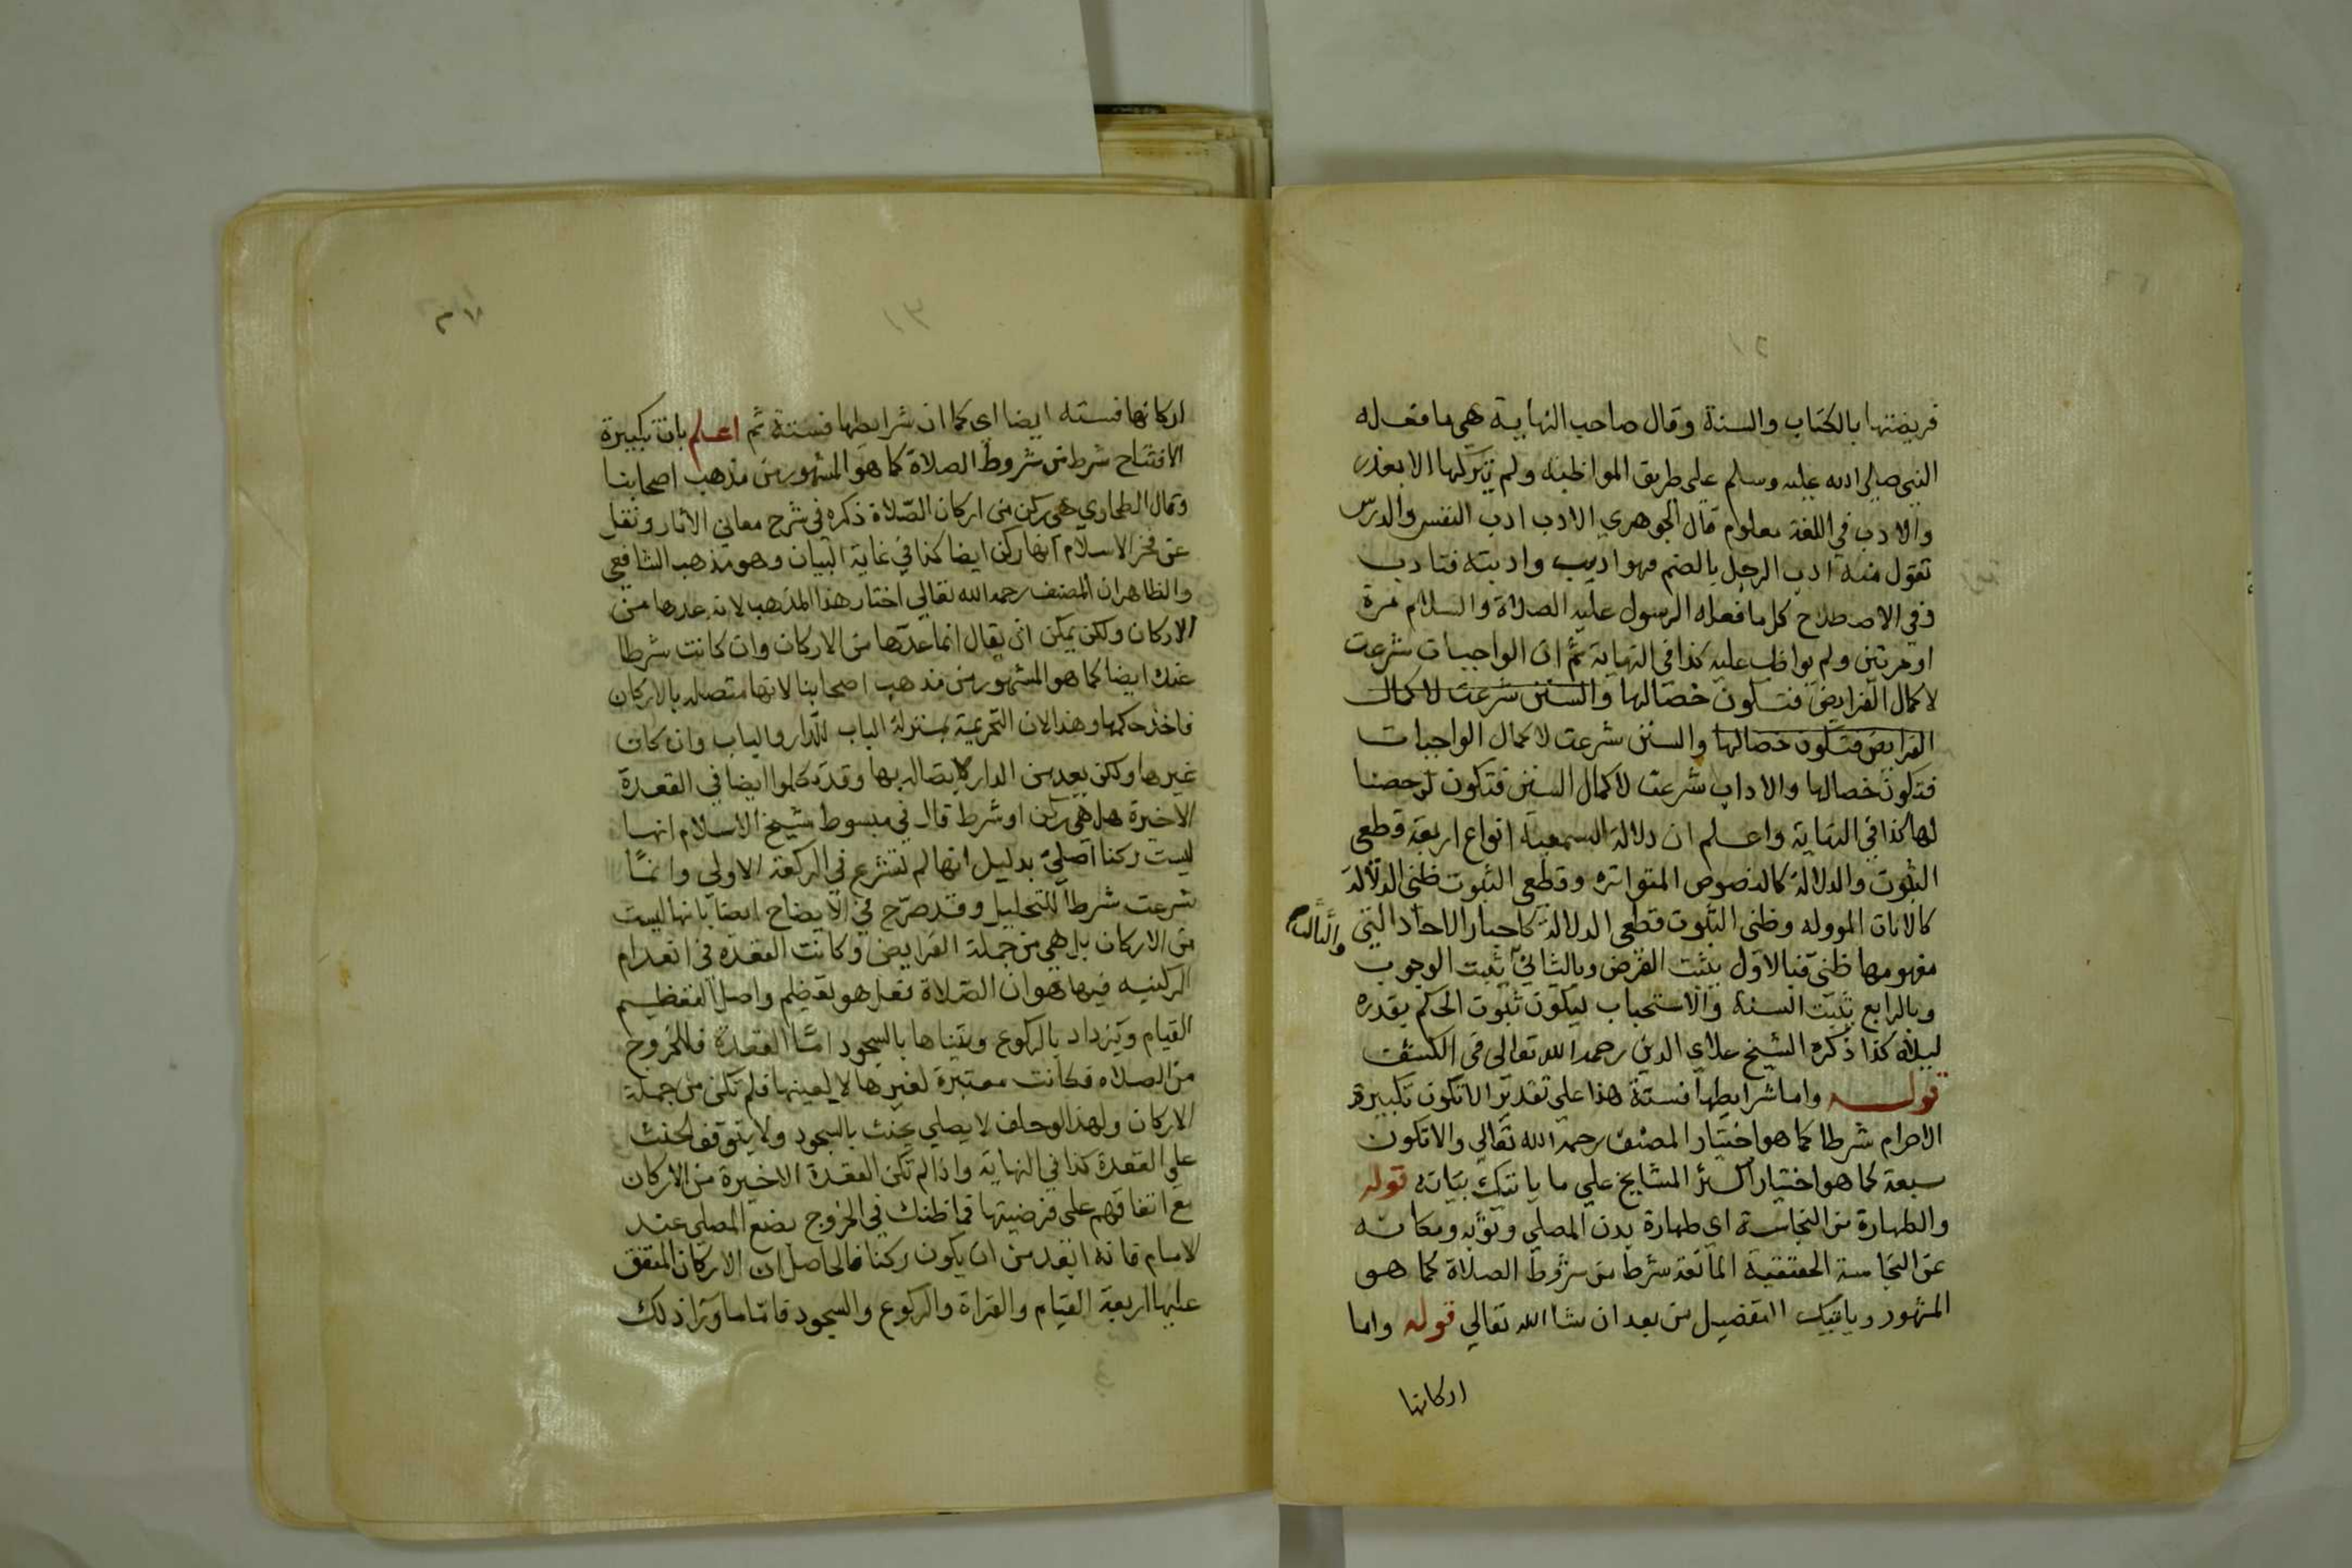 فريضتها بالكتاب والسنة وقال صاحب النهاية هي ما فعله
النبي صلى الله عليه وسلم على طريق المواظبة ولم يتركها الا بعذر
والادب في اللغة معلوم قال الجوهري الادب ادب النفس والدرس
تقول منه ادب الرجل بالضم فهو اديب وادبته فتادب
وفي الاصطلاح كل ما فعله الرسول عليه الصلاة والسلام مرة
او مرتين ولم يواظب عليه كذا في النهاية ثم ان الواجبات شرعت
لاكمال الفرايض فتكون خصالها والسنن شرعت لاكمال
الفرايض فتكون خصالها والسنن شرعت لاكمال الواجبات
فتكون خصالها والاداب شرعت لاكمال السنن فتكون
لها كذا في النهاية واعلم ان دلالة السمعية انواع اربعة قطعي
الثبوت والدلالة كالنصوص المتواترة وقطعي الثبوت ظني الدلالة
كالايات المووله وظني الثبوت قطعي الدلالة كاخبار الاحاد التي
مفهومها ظني فبالاول يثبت الفرض وبالثاني يثبت الوجوب
والثالث
وبالرابع يثبت السنة والاستحباب ليكون ثبوت الحكم بقدره
ليلاه كذا ذكره الشيخ علاي الدين رحمه الله تعالى في الكشف
قوله واما شرايطها فستة هذا على تقدير الا تكون تكبيرة
الاحرام شرطا كما هو اختيار المصنف رحمه الله تعالي والا تكون
سبعة كما هو اختيار اكثر المشايخ علي ما ياتيك بيانه قوله
والطهارة من النجاسة اي طهارة بدن المصلي وثوبه ومكانه
عن النجاسة الحقيقية المانعة شرط من شروط الصلاة كما هو
المشهور وياتيك التفصيل من بعد ان شا الله تعالي قوله واما
اركانها
اركانها فستة ايضا اي كما ان شرايطها فستة ثم اعلم بان تكبيرة
الافتتاح شرط من شروط الصلاة كما هو المشهور من مذهب اصحابنا
وقال الطحاوي هي ركن من اركان الصلاة ذكره في شرح معاني الاثار ونقل
عن فخر الاسلام انها ركن ايضا كذا في غاية البيان وهو مذهب الشافعي
والظاهر ان المصنف رحمه الله تعالي اختار هذا المذهب لانه عدها من
الاركان ولكن يمكن ان يقال انما عدها من الاركان وان كانت شرطا
عنده ايضا كما هو المشهور من مذهب اصحابنا لانها متصلة بالاركان
فاخذ حكمها وهذا لان التحريمة بمنزلة الباب للدار والباب وان كان
غيرها ولكن يعد من الدار لاتصاله بها وقد تكلموا ايضا في القعدة
الاخيرة هل هي ركن او شرط قال في مبسوط شيخ الاسلام انها
ليست ركنا اصلي بدليل انها لم تشرع في الركعة الاولي وانما
شرعت شرطا للتحليل وقد صرح في الايضاح ايضا بانها ليست
من الاركان بل هي من جملة الفرايض وكانت القعدة في انعدام
الركنيه فيها هو ان الصلاة فعل هو تعظيم واصل التعظيم
القيام ويزداد بالركوع ويتناها بالسجود اما القعدة فللخروج
من الصلاه فكانت معتبرة لغيرها لا لعينها فلم تكن من جملة
الاركان ولهذا لو حلف لا يصلي يحنث بالسجود ولا يتوقف الحنث
علي القعدة كذا في النهاية واذا لم تكن القعدة الاخيرة من الاركان
مع اتفاقهم على فرضيتها فما ظنك في الخروج بصنع المصلي عند
الامام فانه ابعد من ان يكون ركنا فالحاصل ان الاركان المتفق
عليها اربعة القيام والقراة والركوع والسجود فاما ما ورا ذلك